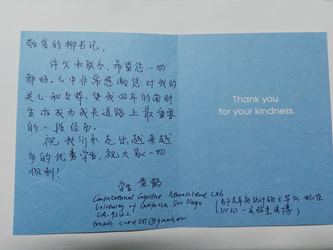 敬爱的柳书记，
许久未联系，希望您一切
都好。心中非常感激您对我的
关心和支持，使我四年的南师
生活成为成长道路上最重要
的一段经历。
祝我们系走出越来越
多的优秀学生，祝大家一切
顺利！
学生
Computational Cognitive Neuroscience Lab
University of California, San Diego
CA. 92122
Email:
Thank you
for your kindness.